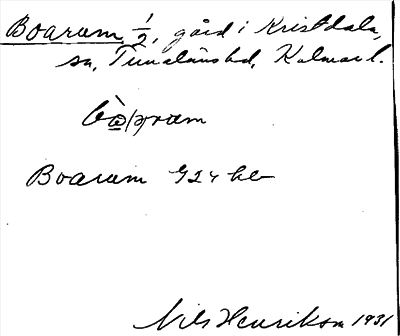 Boarum 1/2, gård i Kristdala
sn, Tunaläns hd, Kalmar l.
Boarum G24 kb
Nils Henrikson 1931